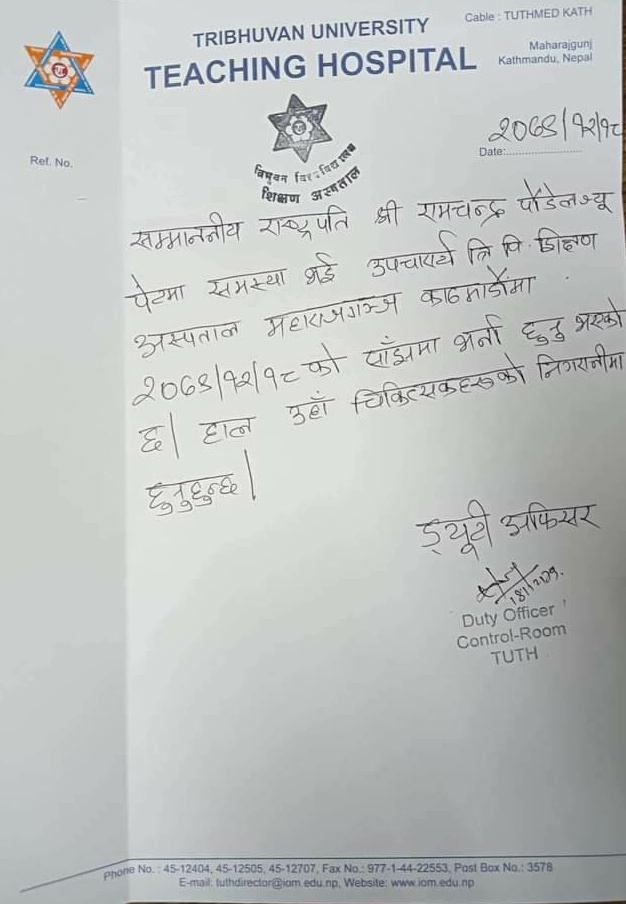 TRIBHUVAN UNIVERSITY
TEACHING HOSPITAL
Cable : TUTHMED KATH
Maharajgunj
Kathmandu, Nepal
त्रिभुवन विश्वविद्यालय
शिक्षण अस्पताल
Ref. No.
२०७९/१२/१८
Date:
सम्माननीय राष्ट्रपति श्री रामचन्द्र पौडेलज्यू
पेटमा समस्या भई उपचारार्थ त्रि वि. शिक्षण
अस्पताल महाराजगञ्ज काठमाडौंमा
२०७९/१२/१८ को साँझमा भर्ना हुनु भएको
छ। हाल उहाँ चिकित्सकहरूको निगरानीमा
हुनुहुन्छ।
ड्यूटी अफिसर
Duty Officer
Control-Room
TUTH
Phone No. : 45-12404, 45-12505, 45-12707, Fax No.: 977-1-44-22553, Post Box No.: 3578
E-mail: tuthdirector@iom.edu.np, Website: www.iom.edu.np